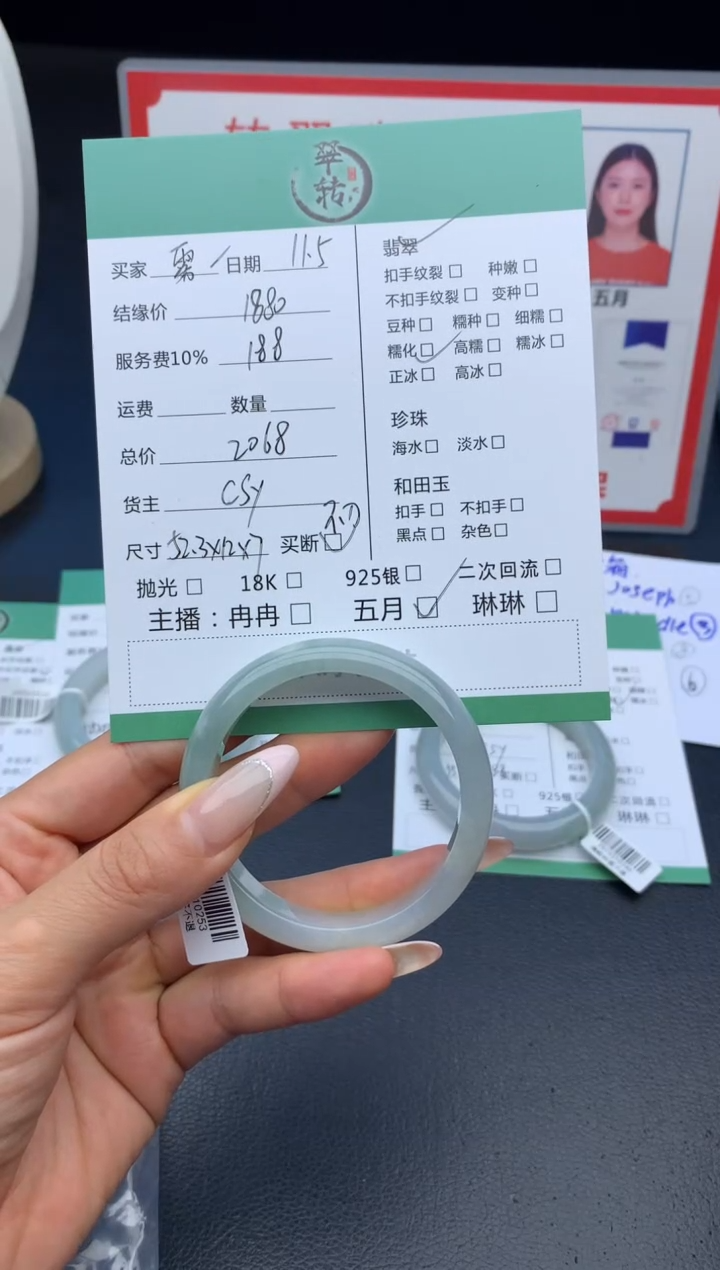 翠
转
买家 日期 11.5
结缘价 1880
服务费10% 188
运费 数量
总价 2068
货主 CSY
尺寸 52.3×12×7 买断
翡翠
扣手纹裂 种嫩
不扣手纹裂 变种
豆种 糯种 细糯
糯化 高糯 糯冰
正冰 高冰
珍珠
海水 淡水
和田玉
扣手 不扣手
黑点 杂色
抛光 18K 925银 二次回流
主播：冉冉 五月 琳琳
五月
Joseph
10253
925银 二次回流
琳琳